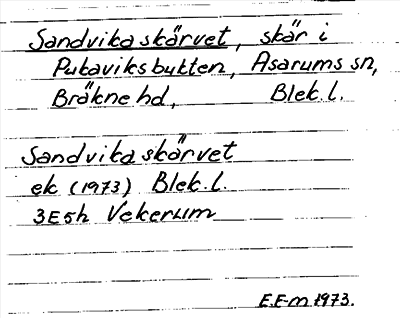 Sandvikaskärvet, skär i
Pukaviksbukten, Asarums sn,
Bräkne hd, Blek.l.
Sandvikaskärvet
ek (1973) Blek.l.
3E5h Vekerum
E.E-m 1973.